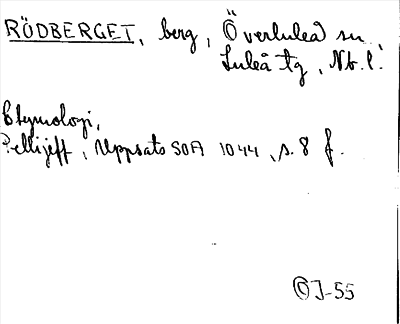 RÖDBERGET, berg, Överluleå sn,
Luleå tg, Nb. l.
Etymologi,
Pellijeff, Uppsats SOA 1044, s. 8 f.
© J-55